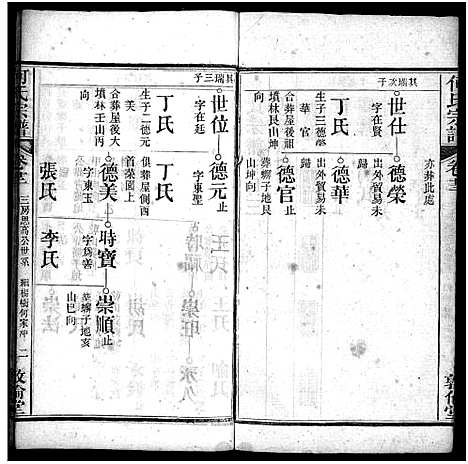 何氏宗譜
卷
亦葬此處
其瑞次子
世仕
字在賢
丁氏
生子三德榮
華 官
合葬屋後祖
墳林艮山坤
向
德榮
出外貿易未
歸
德華
出外貿易未
歸
德官止
葬螄子地艮
山坤向
其瑞三子
世位
字在廷
丁氏
生子二德元
美
合葬屋後大
墳林壬山丙
向
德元止
字東聖
丁氏
俱葬屋側西
首菜園上
德美
字東玉
張氏
時寶
字為善
李氏
崇順止
葬螄子地亥
山巳向
何氏宗譜
卷
三房思
公世系
樹何家沖
二
敦倫堂